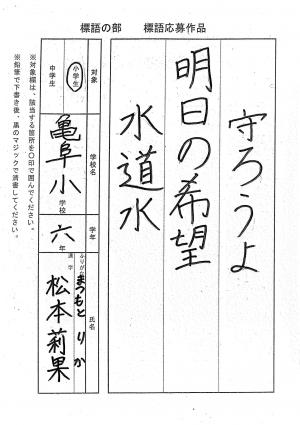 標語の部　標語応募作品
守ろうよ
明日の希望
水道水
対象
小学生
中学生
学校名
亀阜小学校
学年
六年
氏名
ふりがな
まつもと りか
漢字
松本莉果
※対象欄は、該当する箇所を〇印で囲んでください。
※鉛筆で下書き後、黒のマジックで清書してください。